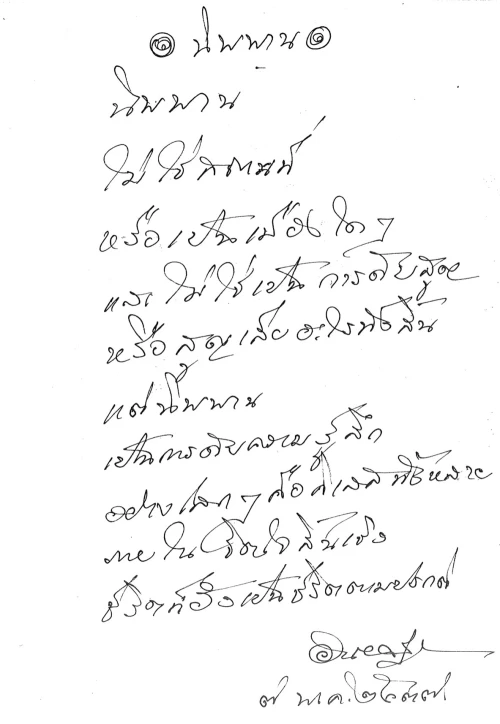 ๏ นิพพาน ๏
นิพพาน
ไม่ใช่สถานที่
หรือเป็นเมืองใดๆ
และไม่ใช่เป็นการดับสูญ
หรือสูญเสียอะไรทั้งสิ้น
แต่นิพพาน
เป็นการดับความรู้สึก
อย่าง ๆ คือกิเลสทั้งหลาย
ภายในจิตใจสิ้นเชิง
ชีวิตที่จึงเป็นชีวิตตามปกติ
๗ พ.ค. ๒๕๓๗